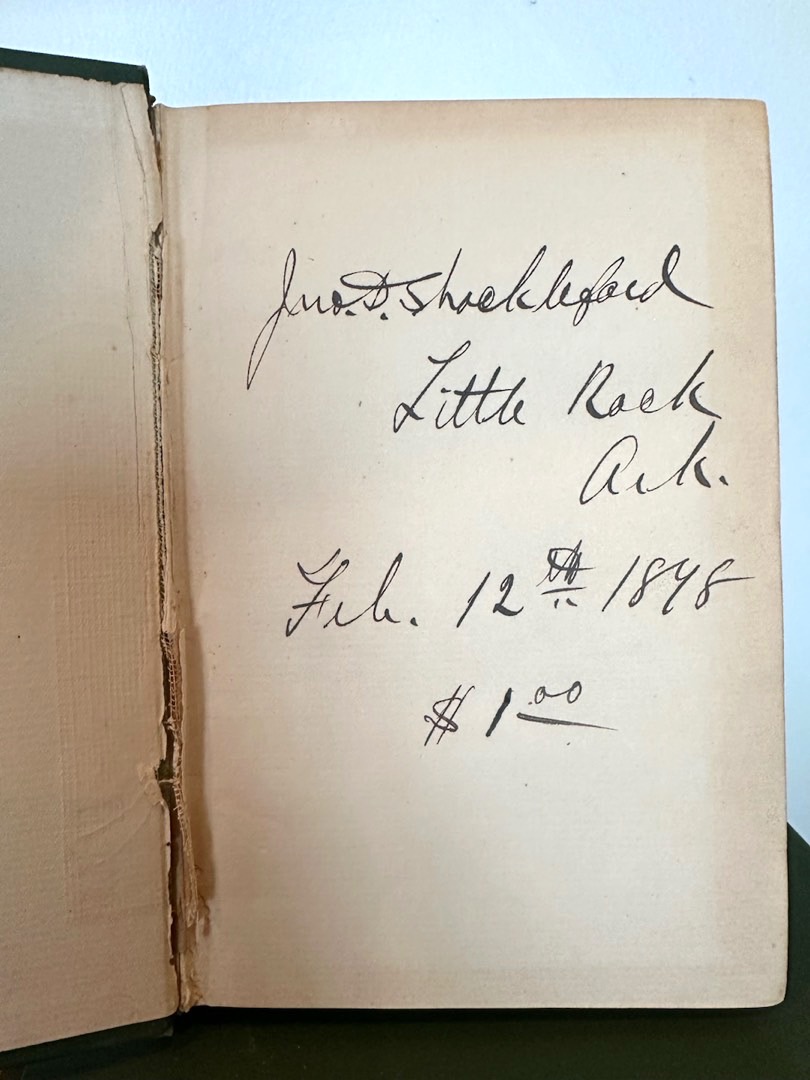 Jno. D. Shackleford
Little Rock
Ark.
Feb. 12th 1898
$1.00